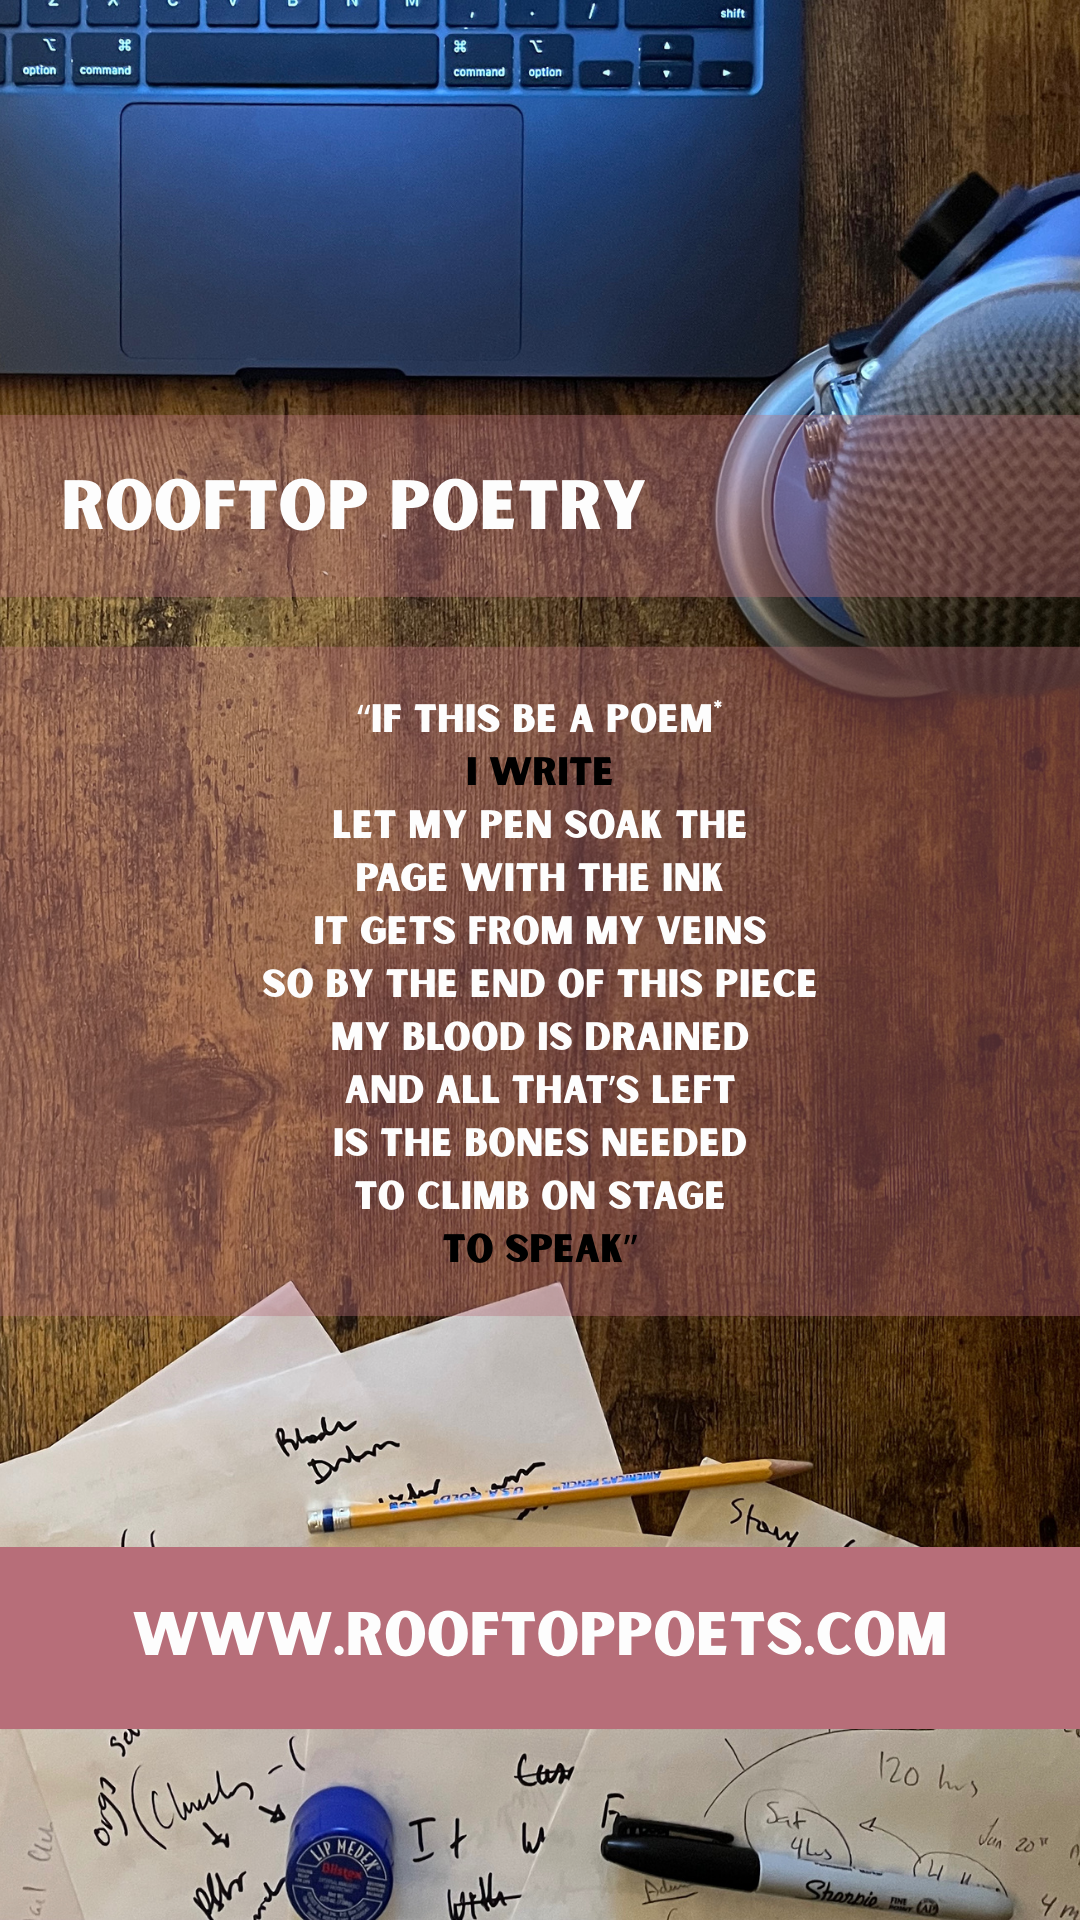 Z X C V B N M , . / shift
option command command option
ROOFTOP POETRY
“IF THIS BE A POEM*
I WRITE
LET MY PEN SOAK THE
PAGE WITH THE INK
IT GETS FROM MY VEINS
SO BY THE END OF THIS PIECE
MY BLOOD IS DRAINED
AND ALL THAT'S LEFT
IS THE BONES NEEDED
TO CLIMB ON STAGE
TO SPEAK”
U.S.A. GOLD® AMERICA'S PENCIL™
Story
WWW.ROOFTOPPOETS.COM
120 hrs
orgs (Churches
Sat
4 hrs
Jan 20th
It
LIP MEDEX®
Blistex
Sharpie FINE